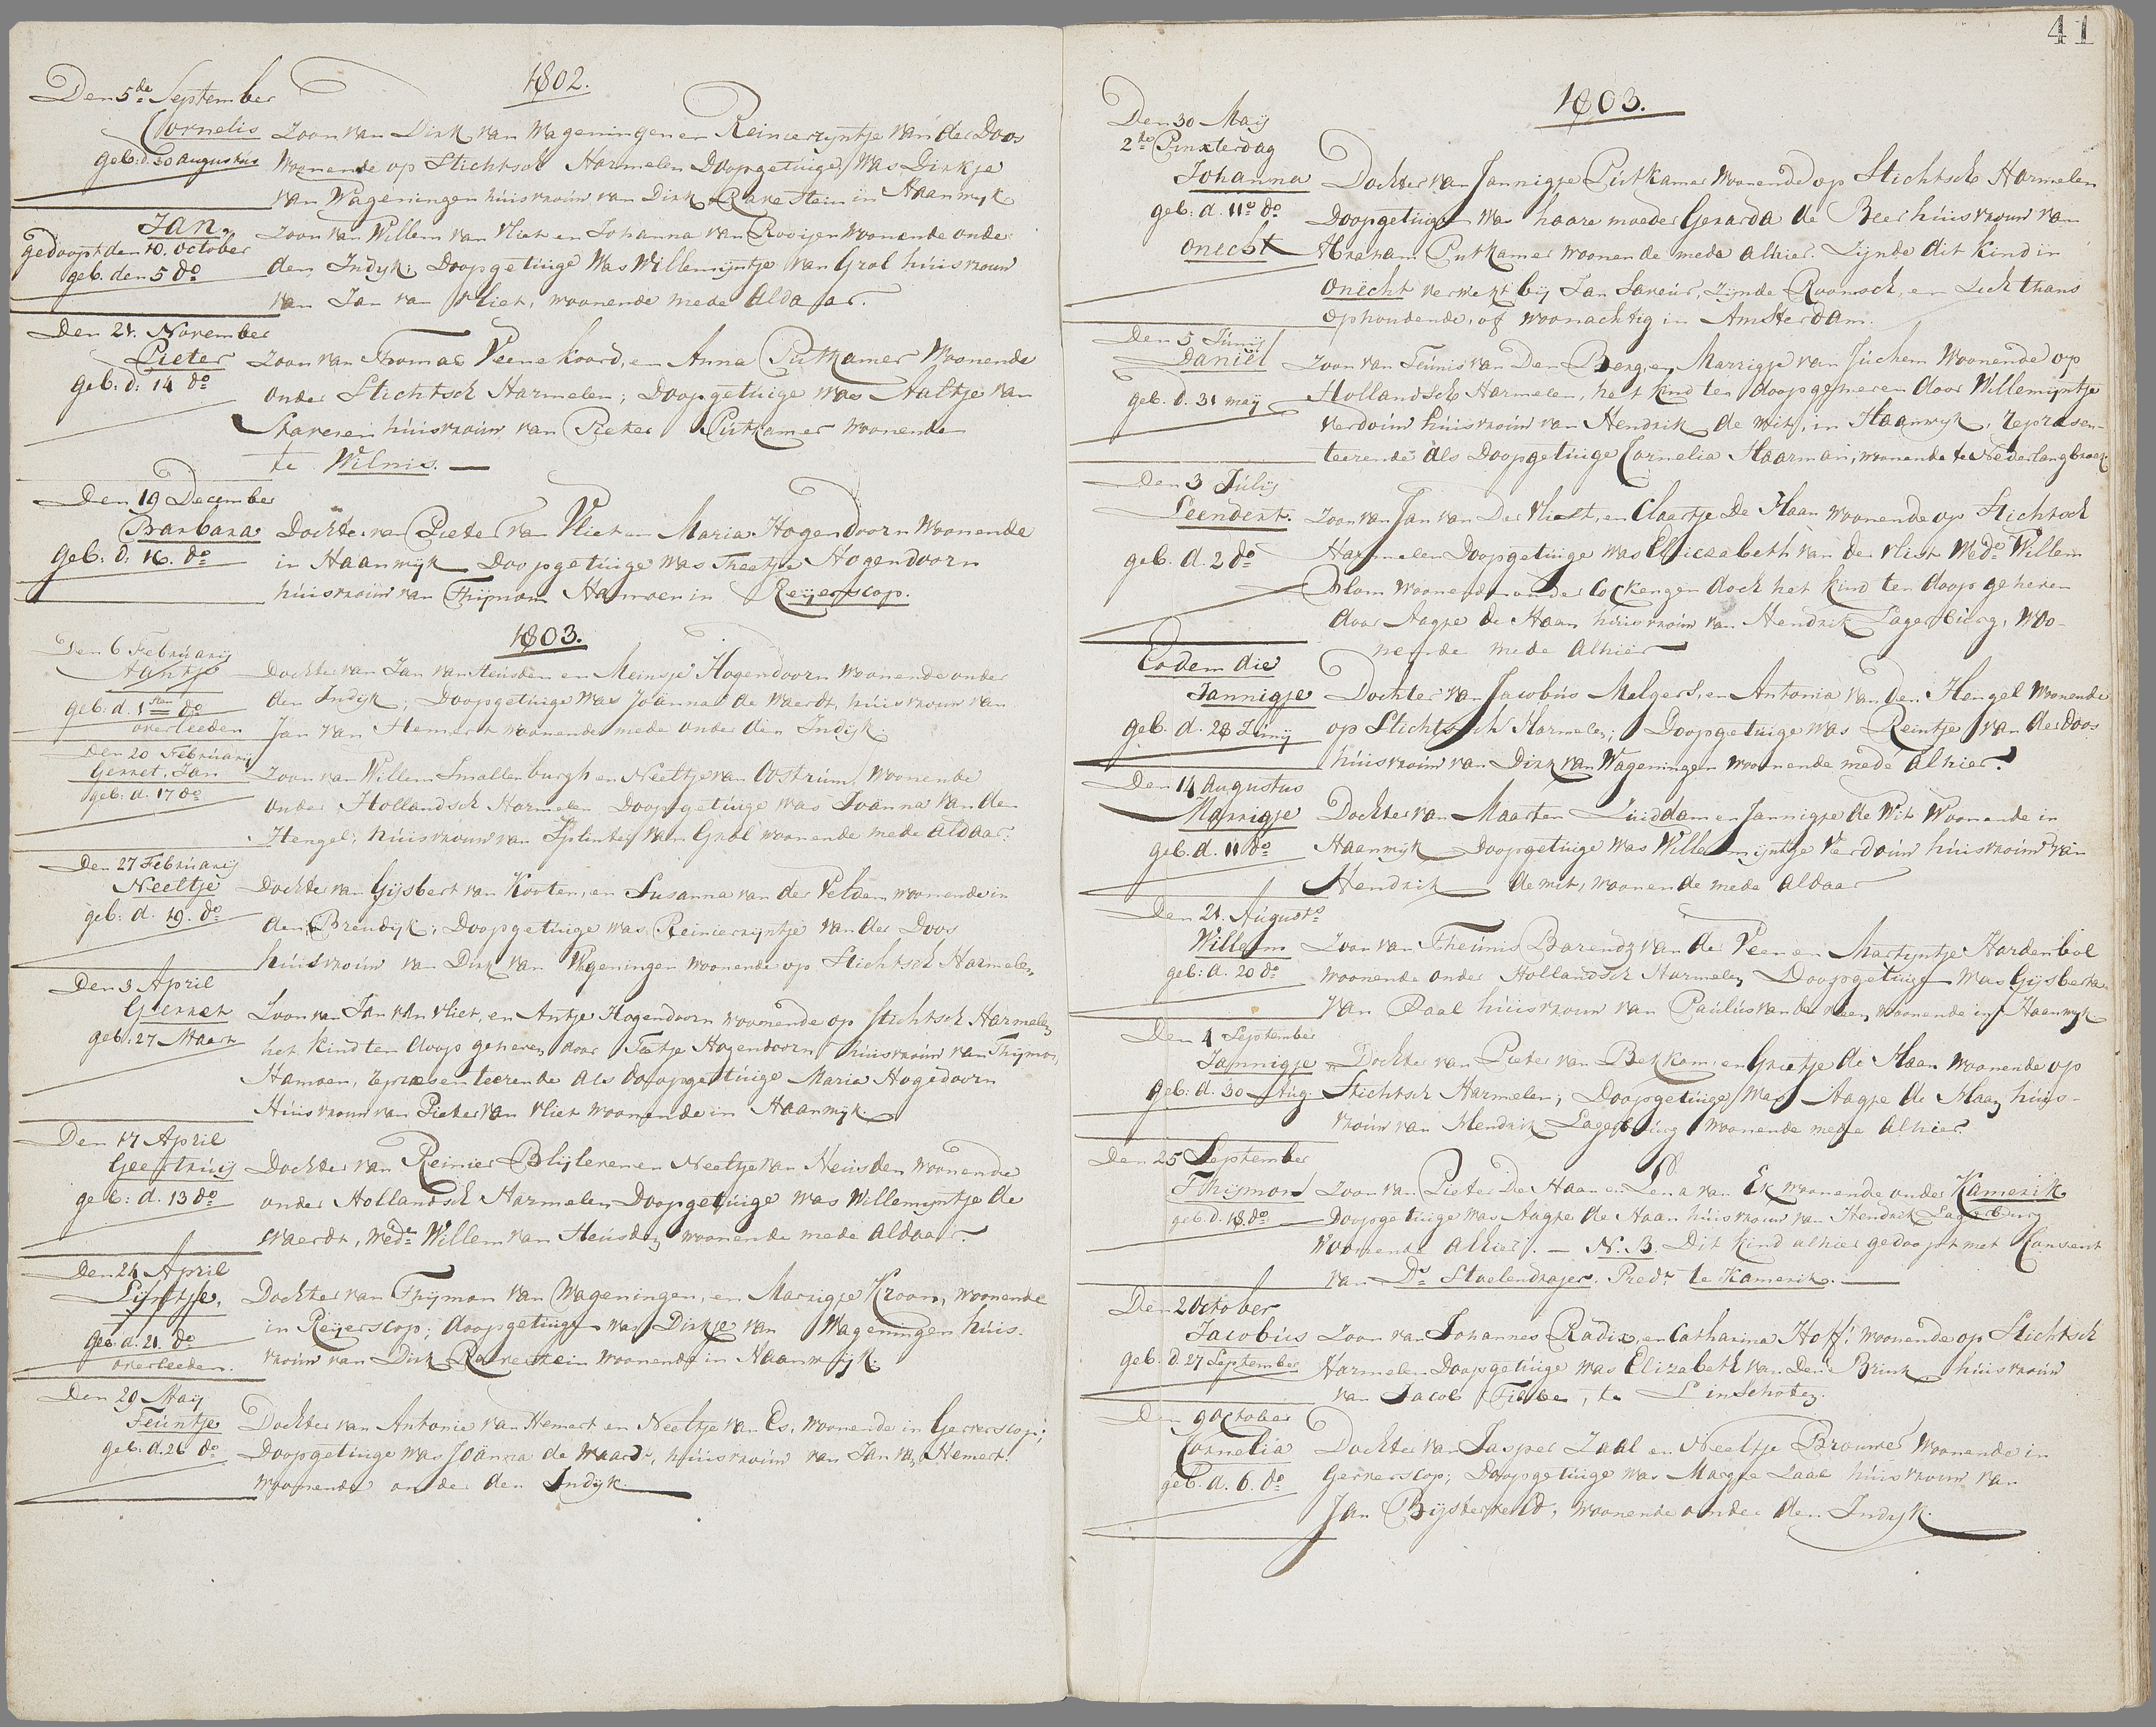 1802.
Den 5de September
Cornelis Zoon van Dirk van Wageningen en Reinierzyntje van der Doos
geb: d. 30 augustus woonende op Stichtsch Harmelen Doopgetuige was Dirkje
van Wageningen huisvrouw van Dirk Ravestein in Haanwijk
Jan. Zoon van Willem van Vliet en Johanna van Rooijen woonende onder
gedoopt den 10. October
geb. den 5 do den Indijk; Doopgetuige was Willemijntje van Grol huisvrouw
van Jan van Vliet, woonende mede aldaar.
Den 21. November
Pieter Zoon van Thomas Veenekoord, en Anna Putkamer woonende
geb: d: 14 do onder Stichtsch Harmelen; Doopgetuige was Aaltje van
huisvrouw van Pieter Putkamer woonende
te Wilnis. —
Den 19 December
Barbara Dochter van Pieter van Vliet en Maria Hogendoorn woonende
geb: d: 16. do in Haanwijk Doopgetuige was Theetje Hogendoorn
huisvrouw van Thijmon Hamoen in Reijerscop.
1803.
Den 6 Februarij
Dochter van Jan van Heusden en Meinsje Hogendoorn woonende onder
geb: d. 1sten do den Indijk; Doopgetuige was Joanna de Waerdt, huisvrouw van
overleeden Jan van Hemert woonende mede onder den Indijk.
Den 20 Februarij
Gerret. Jan Zoon van Willem Smallenburgh en Neeltje van Oostrum, woonende
geb: d. 17 do onder Hollandsch Harmelen Doopgetuige was Joanna van den
Hengel; huisvrouw van Splinter van Grol woonende mede aldaar.
Den 27 Februarij
Neeltje Dochter van Gijsbert van Kooten, en Susanna van der Velden woonende in
geb: d. 19. do den Breudijk; Doopgetuige was Reinierzyntje van der Doos
huisvrouw van Dirk van Wageningen woonende op Stichtsch Harmelen
Den 3 April
Gerret Zoon van Jan van Vliet, en Antje Hogendoorn woonende op Stichtsch Harmelen
geb: 27 Maart het kind ten doop geheven door Teetje Hogendoorn huisvrouw van Thijmon
Hamoen, representeerende als doopgetuige Maria Hogedoorn
Huisvrouw van Pieter van Vliet woonende in Haanwijk.
Den 17 April
Geertruij Dochter van Reinier Blijleven en Neeltje van Heusden woonende
geb: d. 13 do onder Hollandsch Harmelen Doopgetuige was Willemijntje de
Waerdt, wede Willem van Heusden woonende mede aldaar.
Den 24 April
Sijntje. Dochter van Thijmon van Wageningen, en Marrigje Kroon, woonende
geb. d. 21. do in Reijerscop; doopgetuige was Dirkje van Wageningen huis-
overleeden. vrouw van Dirk Ravestein woonende in Haanwijk.
Den 29 Maij
Teuntje Dochter van Antonie van Hemert en Neeltje van Es, woonende in Gerverscop;
geb. d. 26 do Doopgetuige was Joanna de Waardt, huisvrouw van Jan van Hemert.
woonende onder den Indijk.
41
1803.
Den 30 Maij
2de Pinxterdag
Johanna Dochter van Jannigje Putkamer woonende op Stichtsch Harmelen
geb: d. 11e do Doopgetuige was haare moeder Gerarda de Beer huisvrouw van
onecht Abraham Putkamer woonende mede alhier. Zijnde dit kind in
onecht verwekt bij Jan Saveur, zijnde Roomsch, en zich thans
ophoudende, of woonachtig in Amsterdam.
Den 5 Junij
Daniël Zoon van Teunis van Den Berg, en Marrigje van Juchem woonende op
geb. d. 31 maij Hollandsch Harmelen, het kind ten doop geheven door Willemijntje
Verdouw huisvrouw van Hendrik de Wit, in Haanwijk, represen-
teerende als Doopgetuige Cornelia Haarman, woonende te Nederlangbroek.
Den 3 Julij
Leendert. Zoon van Jan van Der Vliet, en Claartje De Haan woonende op Stichtsch
geb. d. 2 do Harmelen Doopgetuige was Eliezabeth van der Vliet Wede Willem
Blom woonende onder Cockengen doch het kind ten doop geheven
door Aagje de Haan huisvrouw van Hendrik Lagerburg, woo-
nende mede alhier
Eodem die
Jannigje Dochter van Jacobus Melgerd, en Antonia van den Hengel woonende
geb. d. 28 Junij op Stichtsch Harmelen; Doopgetuige was Reintje van der Doos
huisvrouw van Dirk van Wageningen woonende mede alhier.
Den 14 Augustus
Marrigje Dochter van Maarten Luiddam en Jannigje de Wit woonende in
geb. d. 11 do Haanwijk Doopgetuige was Willemijntje Verdouw huisvrouw van
Hendrik de wit, woonende mede aldaar
Den 21. Augusts
Willem Zoon van Theunis Barendz van der Veen en Martijntje Hardenbol
geb: d. 20 do woonende onder Hollandsch Harmelen Doopgetuige was Gijsberta
van Daal huisvrouw van Paulus van der Veen, woonende in Haanwijk
Den 4 September
Jannigje Dochter van Pieter van Bekkom, en Grietje de Haan woonende op
geb: d. 30 Aug. Stichtsch Harmelen; Doopgetuige was Aagje de Haan huijs-
vrouw van Hendrik Lagerburg woonende mede alhier.
Den 25 September
Thijmon Zoon van Pieter De Haan en Lena van Ek woonende onder Kamerik
geb. d. 18. do Doopgetuige was Aagje de Haan huisvrouw van Hendrik Lagerburg
woonende alhier. — N.B. Dit kind alhier gedoopt met Consent
van Ds. Stoelendrajer, Predt. te Kamerik. —
Den 2 October
Jacobus Zoon van Johannes Radix, en Catharina Hoff. woonende op Stichtsch
geb. d. 27 September Harmelen Doopgetuige was Elizabeth van Den Brink, huisvrouw
van Jacob te Linschoten.
Den 9 October
Cornelia Dochter van Jasper Zaal en Neeltje Brouwer woonende in
geb. d. 6. do Gerverscop; Doopgetuige was Margje Zaal huisvrouw van
Jan Bijsterveld, woonende onder den Indijk.